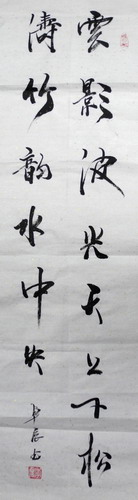 雲影波光天上下松
濤竹韵水中央